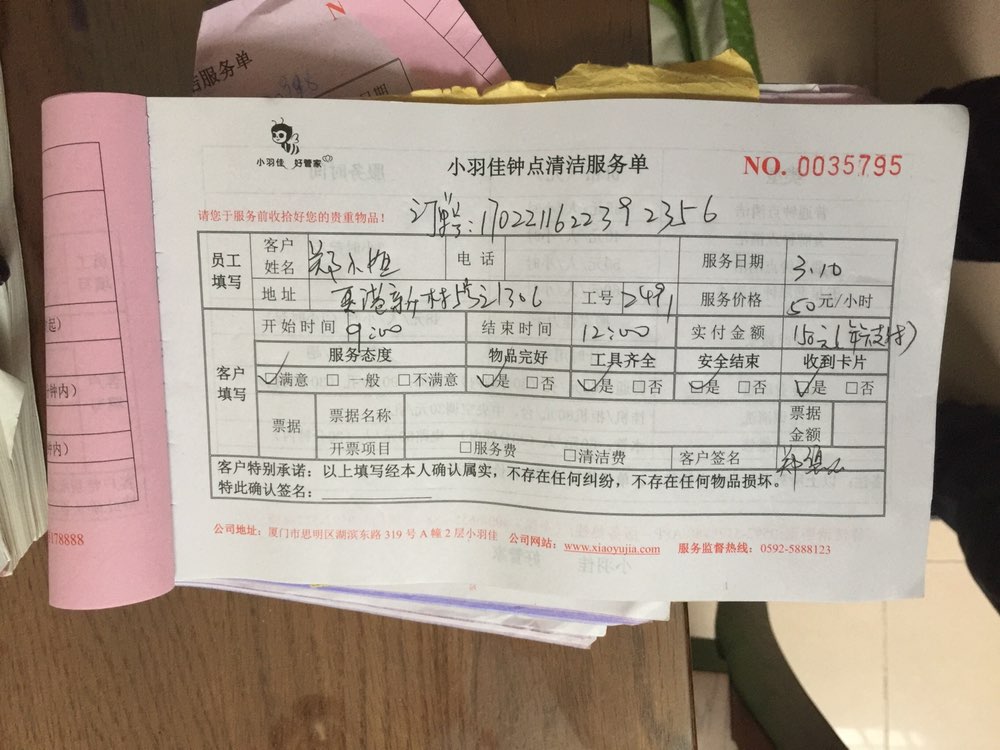 洁服务单
日期
小羽佳 好管家
小羽佳钟点清洁服务单
NO. 0035795
请您于服务前收拾好您的贵重物品！
订单号：170221162239 2356
员工填写
客户姓名 郑小姐
电话
服务日期 3.10
地址
工号 2491
服务价格 50元/小时
客户填写
开始时间 9:00
结束时间 12:00
实付金额
服务态度
物品完好
工具齐全
安全结束
收到卡片
☑满意 □一般 □不满意
☑是 □否
☑是 □否
☑是 □否
☑是 □否
票据
票据名称
票据金额
开票项目
□服务费 □清洁费
客户签名
客户特别承诺：以上填写经本人确认属实，不存在任何纠纷，不存在任何物品损坏。
特此确认签名：
公司地址：厦门市思明区湖滨东路 319 号 A 幢 2 层小羽佳 公司网站：www.xiaoyujia.com 服务监督热线：0592-5888123
钟内）
178888